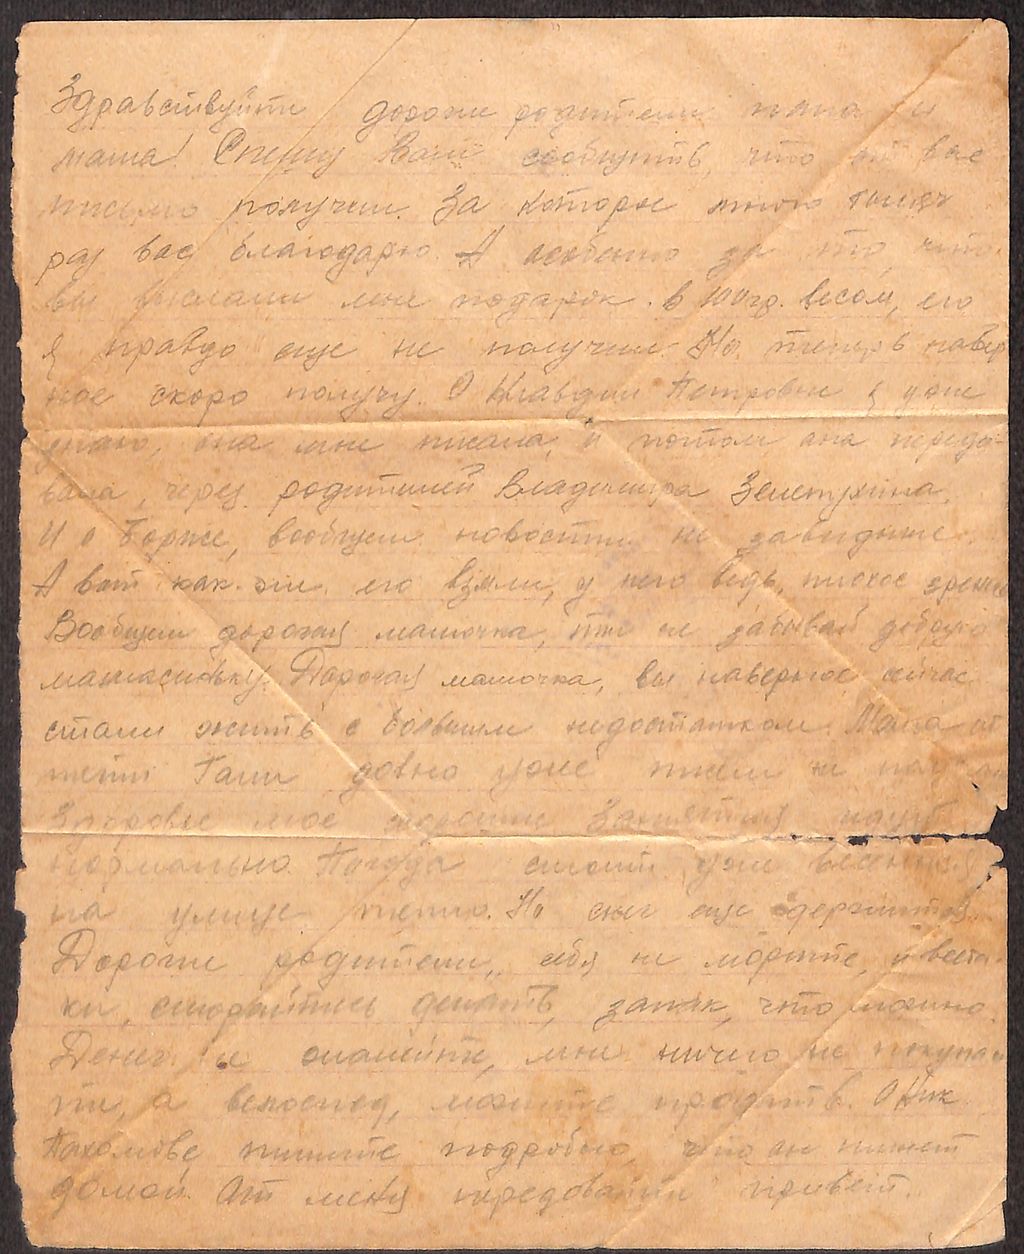 Здравствуйти дороги родители папа и
мама! Спешу Вам сообщить, что от вас
письмо получил. За которое много тысяч
раз вас благодарю. А особенно за то, что
вы выслали мне подарок. в 100 гр. весом, его
я правда еще не получил. Но теперь навер
ное скоро получу. О Клавдии Петровне я уже
знаю, она мне писала, и потом она переда-
вала, через родителей Владимира
И о Борже, вообщем новости не завидные.
А вот как его взяли, у него ведь плохое зрение
Вообщем дорогая мамочка, не забывай добрую
Дорогая мамочка, вы наверное сейчас
стали жить с большим недостатком. Мама от
тети Гали довно уже писем не
Здоровье мое хорошие Занятия
нормально. Погода стоит уже
на улице тепло. Но снег еще держится.
Дороги родители, себя не морите, и
ки, старайтись делать, запас, что можно.
Денег не мне ничего не покупай
ти, а велосипед, можите продать. О Ник
Пахомове, пишите подробно, что он пишет
домой. От меня передовайти привет.